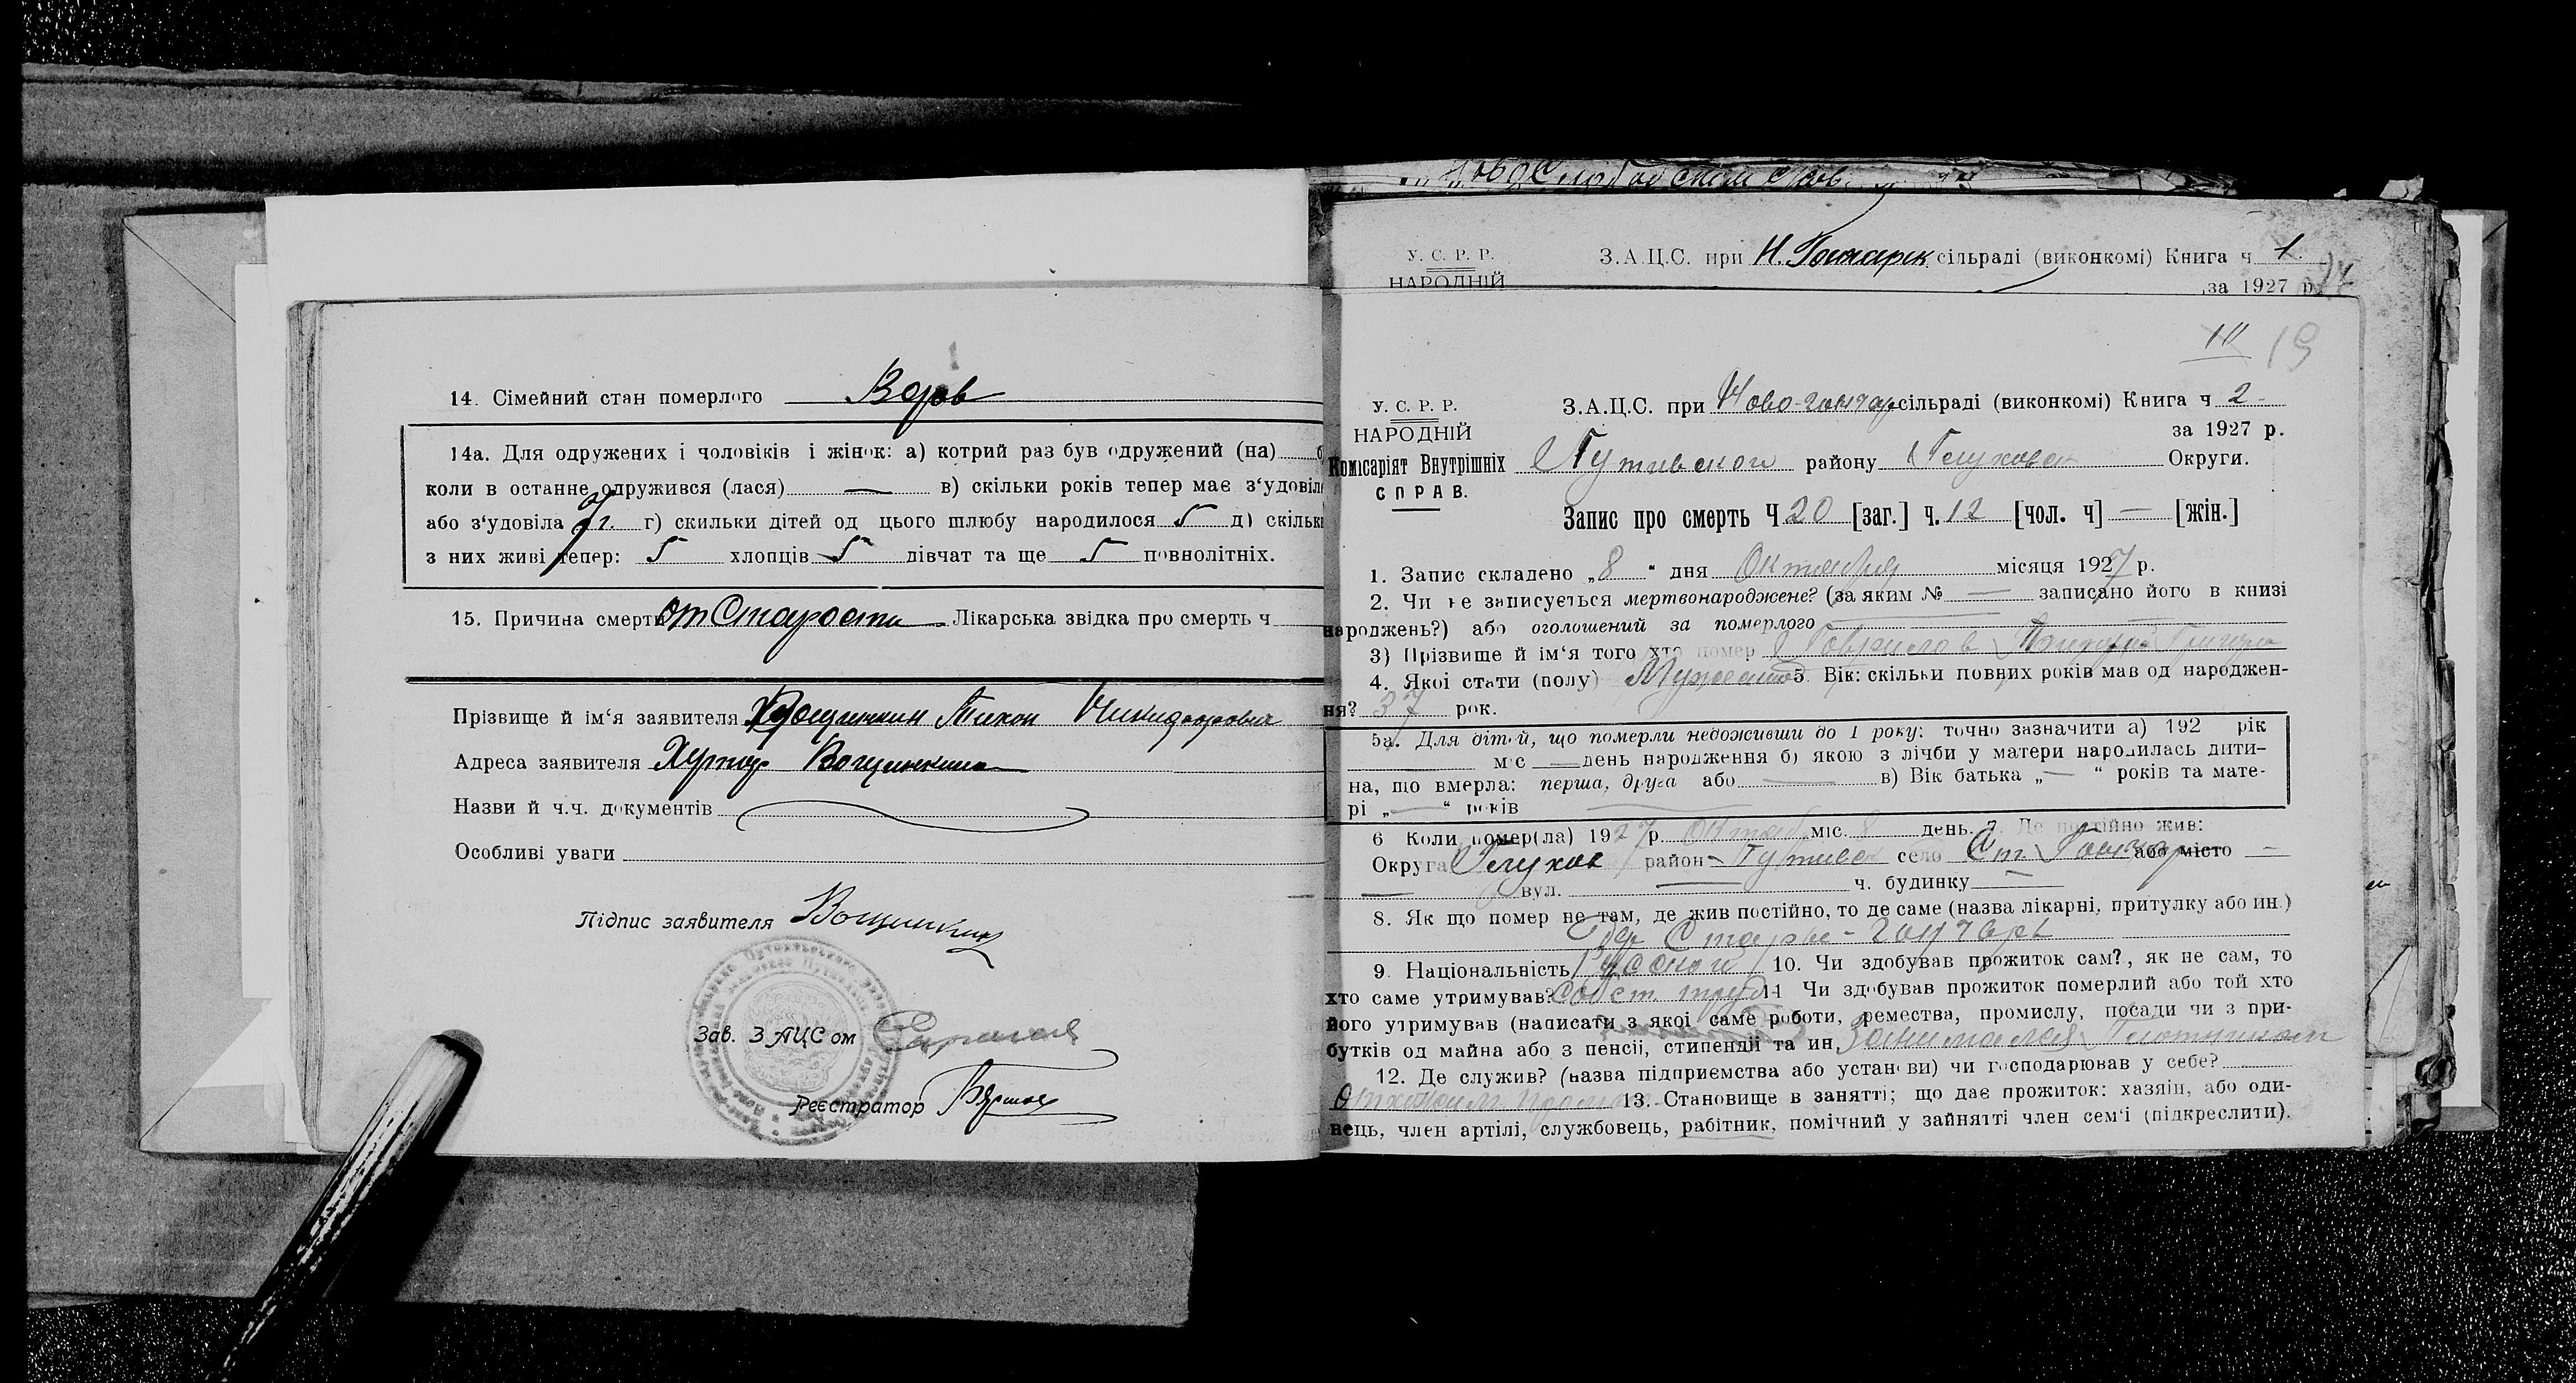 14. Сімейний стан померлого Вдов
14а. Для одружених і чоловіків і жінок: а) котрий раз був одружений (на)
коли в останне одружився (лася) — в) скільки років тепер має з‘удовіл
або з‘удовіла г) скильки дітей од цього шлюбу народилося 5 д) скільк
з них живі тепер: 5 хлопців 5 дівчат та ще 5 повнолітніх.
15. Причина смерти от Старости Лікарська звідка про смерть ч
Прізвище й ім‘я заявителя Тихон
Адреса заявителя Хутор Вощинкина
Назви й ч.ч. документів
Особливі уваги
Підпис заявителя Вощинкин
Зав. ЗАЦСом
Реєстратор
У. С. Р. Р.
НАРОДНІЙ
З.А.Ц.С. при Н. Гончарск сільраді (виконкомі) Книга ч 1.
за 1927 р.
19
У. С. Р. Р.
НАРОДНІЙ
Комісаріят Внутрішніх
СПРАВ.
З.А.Ц.С. при Ново-гончар сільраді (виконкомі) Книга ч 2
за 1927 р.
Путивьского району Глуховск Округи.
Запис про смерть Ч 20 [заг.] ч. 12 [чол. ч] — [жін.]
1. Запис складено „8“ дня Октября місяця 1927 р.
2. Чи не записується мертвонароджене? (за яким № — записано його в книзі
народжень?) або оголошений за померлого
3) Прізвище й ім‘я того хто помер
4. Якоі стати (полу) Мужеской 5. Вік: скільки повних років мав од народжен-
ня? 37 рок.
5а. Для дітей, що померли недоживши до 1 року: точно зазначити а) 192 рік
міс — день народження б) якою з лічби у матери народилась дити-
на, що вмерла: перша, друга або — в) Вік батька „—“ років та мате-
рі „—“ років
6 Коли помер(ла) 1927 р. Октяб міс. 8 день. 7. Де постійно жив:
Округа Глухов район Путивл село Ст. Гончар або місто —
— вул. — ч. будинку —
8. Як що помер не там, де жив постійно, то де саме (назва лікарні, притулку або ин.)
Старые-гончары
9. Національність Русской 10. Чи здобував прожиток сам?, як не сам, то
хто саме утримував? Собст. труд 11 Чи здобував прожиток померлий або той хто
його утримував (написати з якоі саме роботи, ремества, промислу, посади чи з при-
бутків од майна або з пенсіі, стипендіі та ин, Занимался
12. Де служив? (назва підприємства або установи) чи господарював у себе?
13. Становище в занятті; що дає прожиток: хазяін, або оди-
нець, член артілі, службовець, рабітник, помічний у зайнятті член сем‘і (підкреслити).